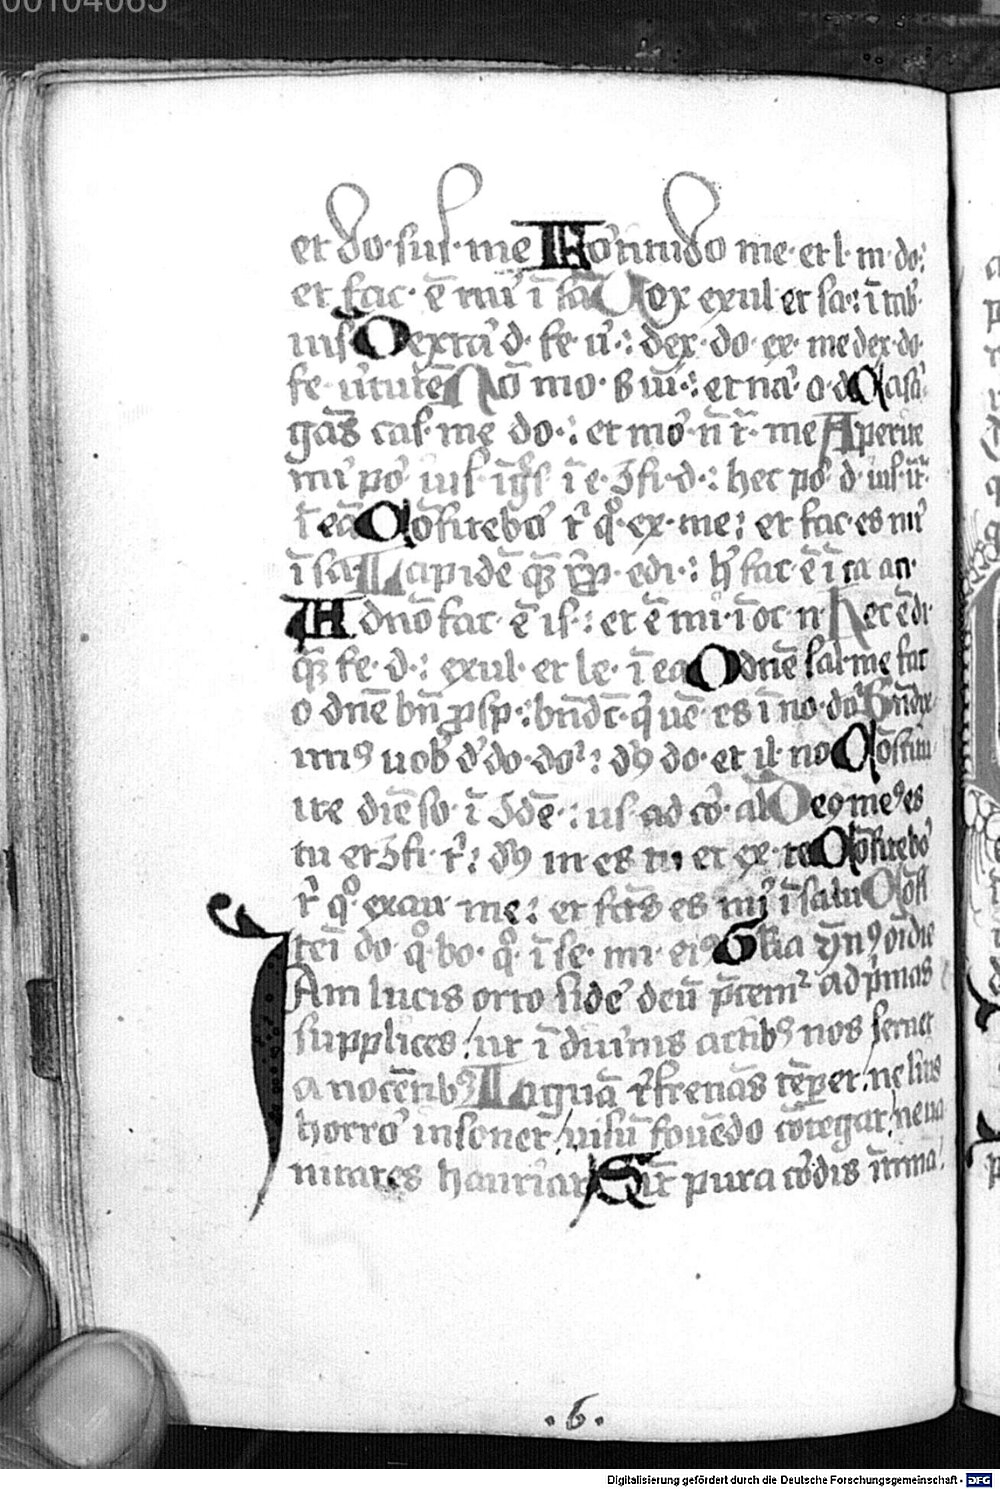 00104085
et do· sus· me Fortitudo me· et l· m· do:
et fac· ē mi' ī sa Vox exul et sa·: ī tab'
ius Dextra' d· fe· ū·: dex· do· ex· me dex· do·
fe· ūtutē Nō mo· s ui·: et na' o· d Casti
gās cas· me do·: et mo' n̄ t· me Aperite
mi' po' ius· īgs ī e· 9fi· d·: hec po' d· ius· īt·
ī eā Cōfitebo' t' q° ex· me: et fac· es mi'
ī sa Lapidē quē rep· edi·: h' fac· ē ī ca an·
A dno fac· ē is·: et ē mi· ī oc· n· Hec ē di·
quā fe· d·: exul· et le· ī ea O dnē sal· me fac
o dnē bn̄ psp·: bn̄dc· q' uē· es ī no· do' Bn̄dix
im9 uob' d' do· do2: d9 do· et il· no Cōstitu
ite diē so· ī 9dē·: us· ad co'· al Deus me9 es
tu et 9fi· t': d9 m· es tu et ex· te Cōfitebo'
t' q° exau· me: et fcūs es mi' ī salu Cōfi
teī do· q° bo· q° ī se· mi· ei9 Gl'ia
IAm lucis orto side' deū p̄cem2 ad p̄mas
supplices/ ut ī diuinis actib9 nos seruet
a nocētib9 Linguā refrenās tēperet/ ne litis
horro' insonet/ uisū fouēdo cōtegat/ ne ua
nitates hauriat Sīt pura co'dis ītima·
·6·
Digitalisierung gefördert durch die Deutsche Forschungsgemeinschaft - DFG